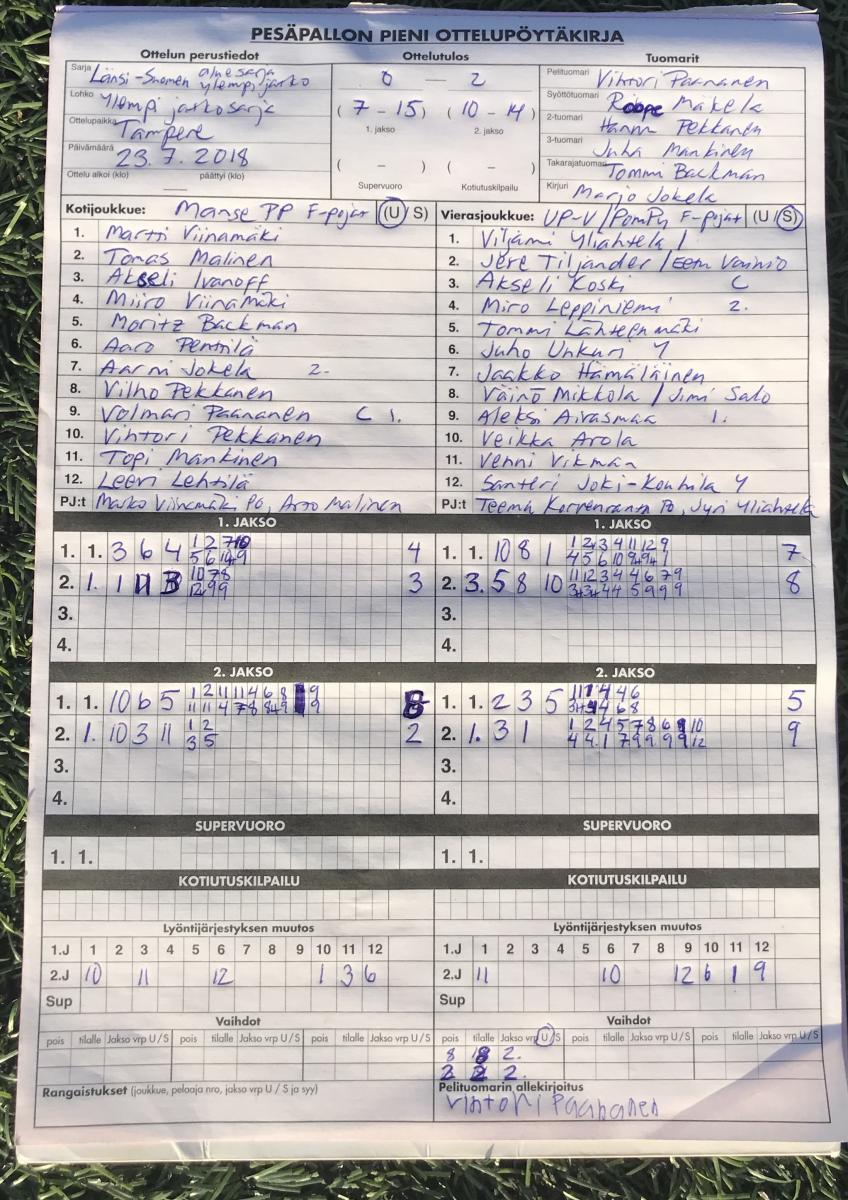 PESÄPALLON PIENI OTTELUPÖYTÄKIRJA
Ottelun perustiedot
Ottelutulos
Tuomarit
Sarja Länsi-Suomen aluesarja ylempi jatko
Lohko Ylempi jatkosarja
Ottelupaikka Tampere
Päivämäärä 23.7.2018
Ottelu alkoi (klo) — päättyi (klo)
0 — 2
(7 - 15) (10 - 14)
1. jakso 2. jakso
( - ) ( - )
Supervuoro Kotiutuskilpailu
Pelituomari Vihtori Paananen
Syöttötuomari Roope Mäkelä
2-tuomari Hannu Pekkanen
3-tuomari Juha Mankinen
Takarajatuomari Tommi Backman
Kirjuri Marjo Jokela
Kotijoukkue: Manse PP F-pojat (U / S)
1. Martti Viinamäki
2. Tomas Malinen
3. Akseli Ivanoff
4. Miiro Viinamäki
5. Moritz Backman
6. Aaro Penttilä
7. Aarni Jokela 2.
8. Vilho Pekkanen
9. Volmari Paananen C 1.
10. Vihtori Pekkanen
11. Topi Mankinen
12. Leevi Lehtilä
PJ:t Marko Viinamäki PÖ, Arto Malinen
Vierasjoukkue: UP-V / PomPy F-pojat (U / S)
1. Viljami Yliahtela /
2. Jere Tiljander / Eetu Vainio
3. Akseli Koski C
4. Miro Leppiniemi 2.
5. Tommi Lähteenmäki
6. Juho Unkuri Y
7. Jaakko Hämäläinen
8. Väinö Mikkola / Jimi Salo
9. Aleksi Airasmaa 1.
10. Veikka Arola
11. Venni Vikman
12. Santeri Joki-Kouhila Y
PJ:t Teemu Korvenranta PÖ, Jyri Yliahtela
1. JAKSO
1. 1. 3 6 4 4
2. 1. 1 11 3 3
3.
4.
1. JAKSO
1. 1. 10 8 1 7
2. 3. 5 8 10 8
3.
4.
2. JAKSO
1. 1. 10 6 5 8
2. 1. 10 3 11 1 2 3 5 2
3.
4.
2. JAKSO
1. 1. 2 3 5 5
2. 1. 3 1 9
3.
4.
SUPERVUORO
1. 1.
SUPERVUORO
1. 1.
KOTIUTUSKILPAILU
KOTIUTUSKILPAILU
Lyöntijärjestyksen muutos
1.J 1 2 3 4 5 6 7 8 9 10 11 12
2.J 10 11 12 1 3 6
Sup
Lyöntijärjestyksen muutos
1.J 1 2 3 4 5 6 7 8 9 10 11 12
2.J 11 10 12 6 1 9
Sup
Vaihdot
pois tilalle Jakso vrp U / S pois tilalle Jakso vrp U / S pois tilalle Jakso vrp U / S
Vaihdot
pois tilalle Jakso vrp U / S pois tilalle Jakso vrp U / S pois tilalle Jakso vrp U / S
8 18 2.
2 2 2.
Rangaistukset (joukkue, pelaaja nro, jakso vrp U / S ja syy)
Pelituomarin allekirjoitus
vihtori Paananen